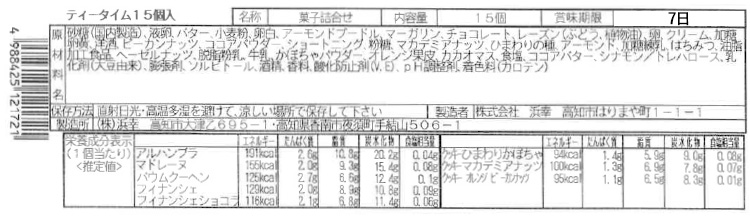 ティータイム15個入
名称 菓子詰合せ 内容量 15個 賞味期限 7日
原材料名
砂糖(国内製造)、液卵、バター、小麦粉、卵白、アーモンドプードル、マーガリン、チョコレート、レーズン(ぶどう、植物油)、卵、クリーム、加糖
卵黄、洋酒、ピーカンナッツ、ココアパウダー、ショートニング、粉糖、マカデミアナッツ、ひまわりの種、アーモンド、加糖練乳、はちみつ、油脂
加工食品、ヘーゼルナッツ、脱脂粉乳、牛乳、かぼちゃパウダー、オレンジ果皮、カカオマス、食塩、ココアバター、シナモン/トレハロース、乳
化剤(大豆由来)、膨張剤、ソルビトール、酒精、香料、酸化防止剤(V.E)、pH調整剤、着色料(カロテン)
保存方法 直射日光・高温多湿を避けて、涼しい場所で保存して下さい 製造者 株式会社 浜幸 高知市はりまや町1-1-1
製造所 (株)浜幸 高知市大津乙695-1・高知県香南市夜須町手結山506-1
栄養成分表示
(1個当たり)
<推定値>
エネルギー たんぱく質 脂質 炭水化物 食塩相当量
アルハンブラ 191kcal 2.6g 10.8g 20.2g 0.04g
マドレーヌ 155kcal 2.0g 9.3g 15.4g 0.08g
バウムクーヘン 125kcal 2.7g 6.6g 12.4g 0.1g
フィナンシェ 129kcal 2.0g 8.9g 10.8g 0.09g
フィナンシェショコラ 116kcal 2.1g 6.8g 11.4g 0.06g
エネルギー たんぱく質 脂質 炭水化物 食塩相当量
クッキーひまわりかぼちゃ 94kcal 1.4g 5.9g 9.0g 0.08g
クッキーマカデミアナッツ 100kcal 1.3g 6.9g 7.8g 0.07g
クッキーオレンジピーカンナッツ 95kcal 1.1g 6.5g 8.3g 0.01g
4988425121721